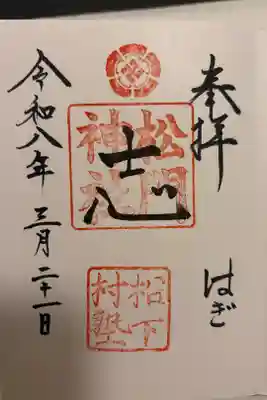 奉拝
はぎ
松門
神社
志
松下
村塾
令和八年三月二十一日